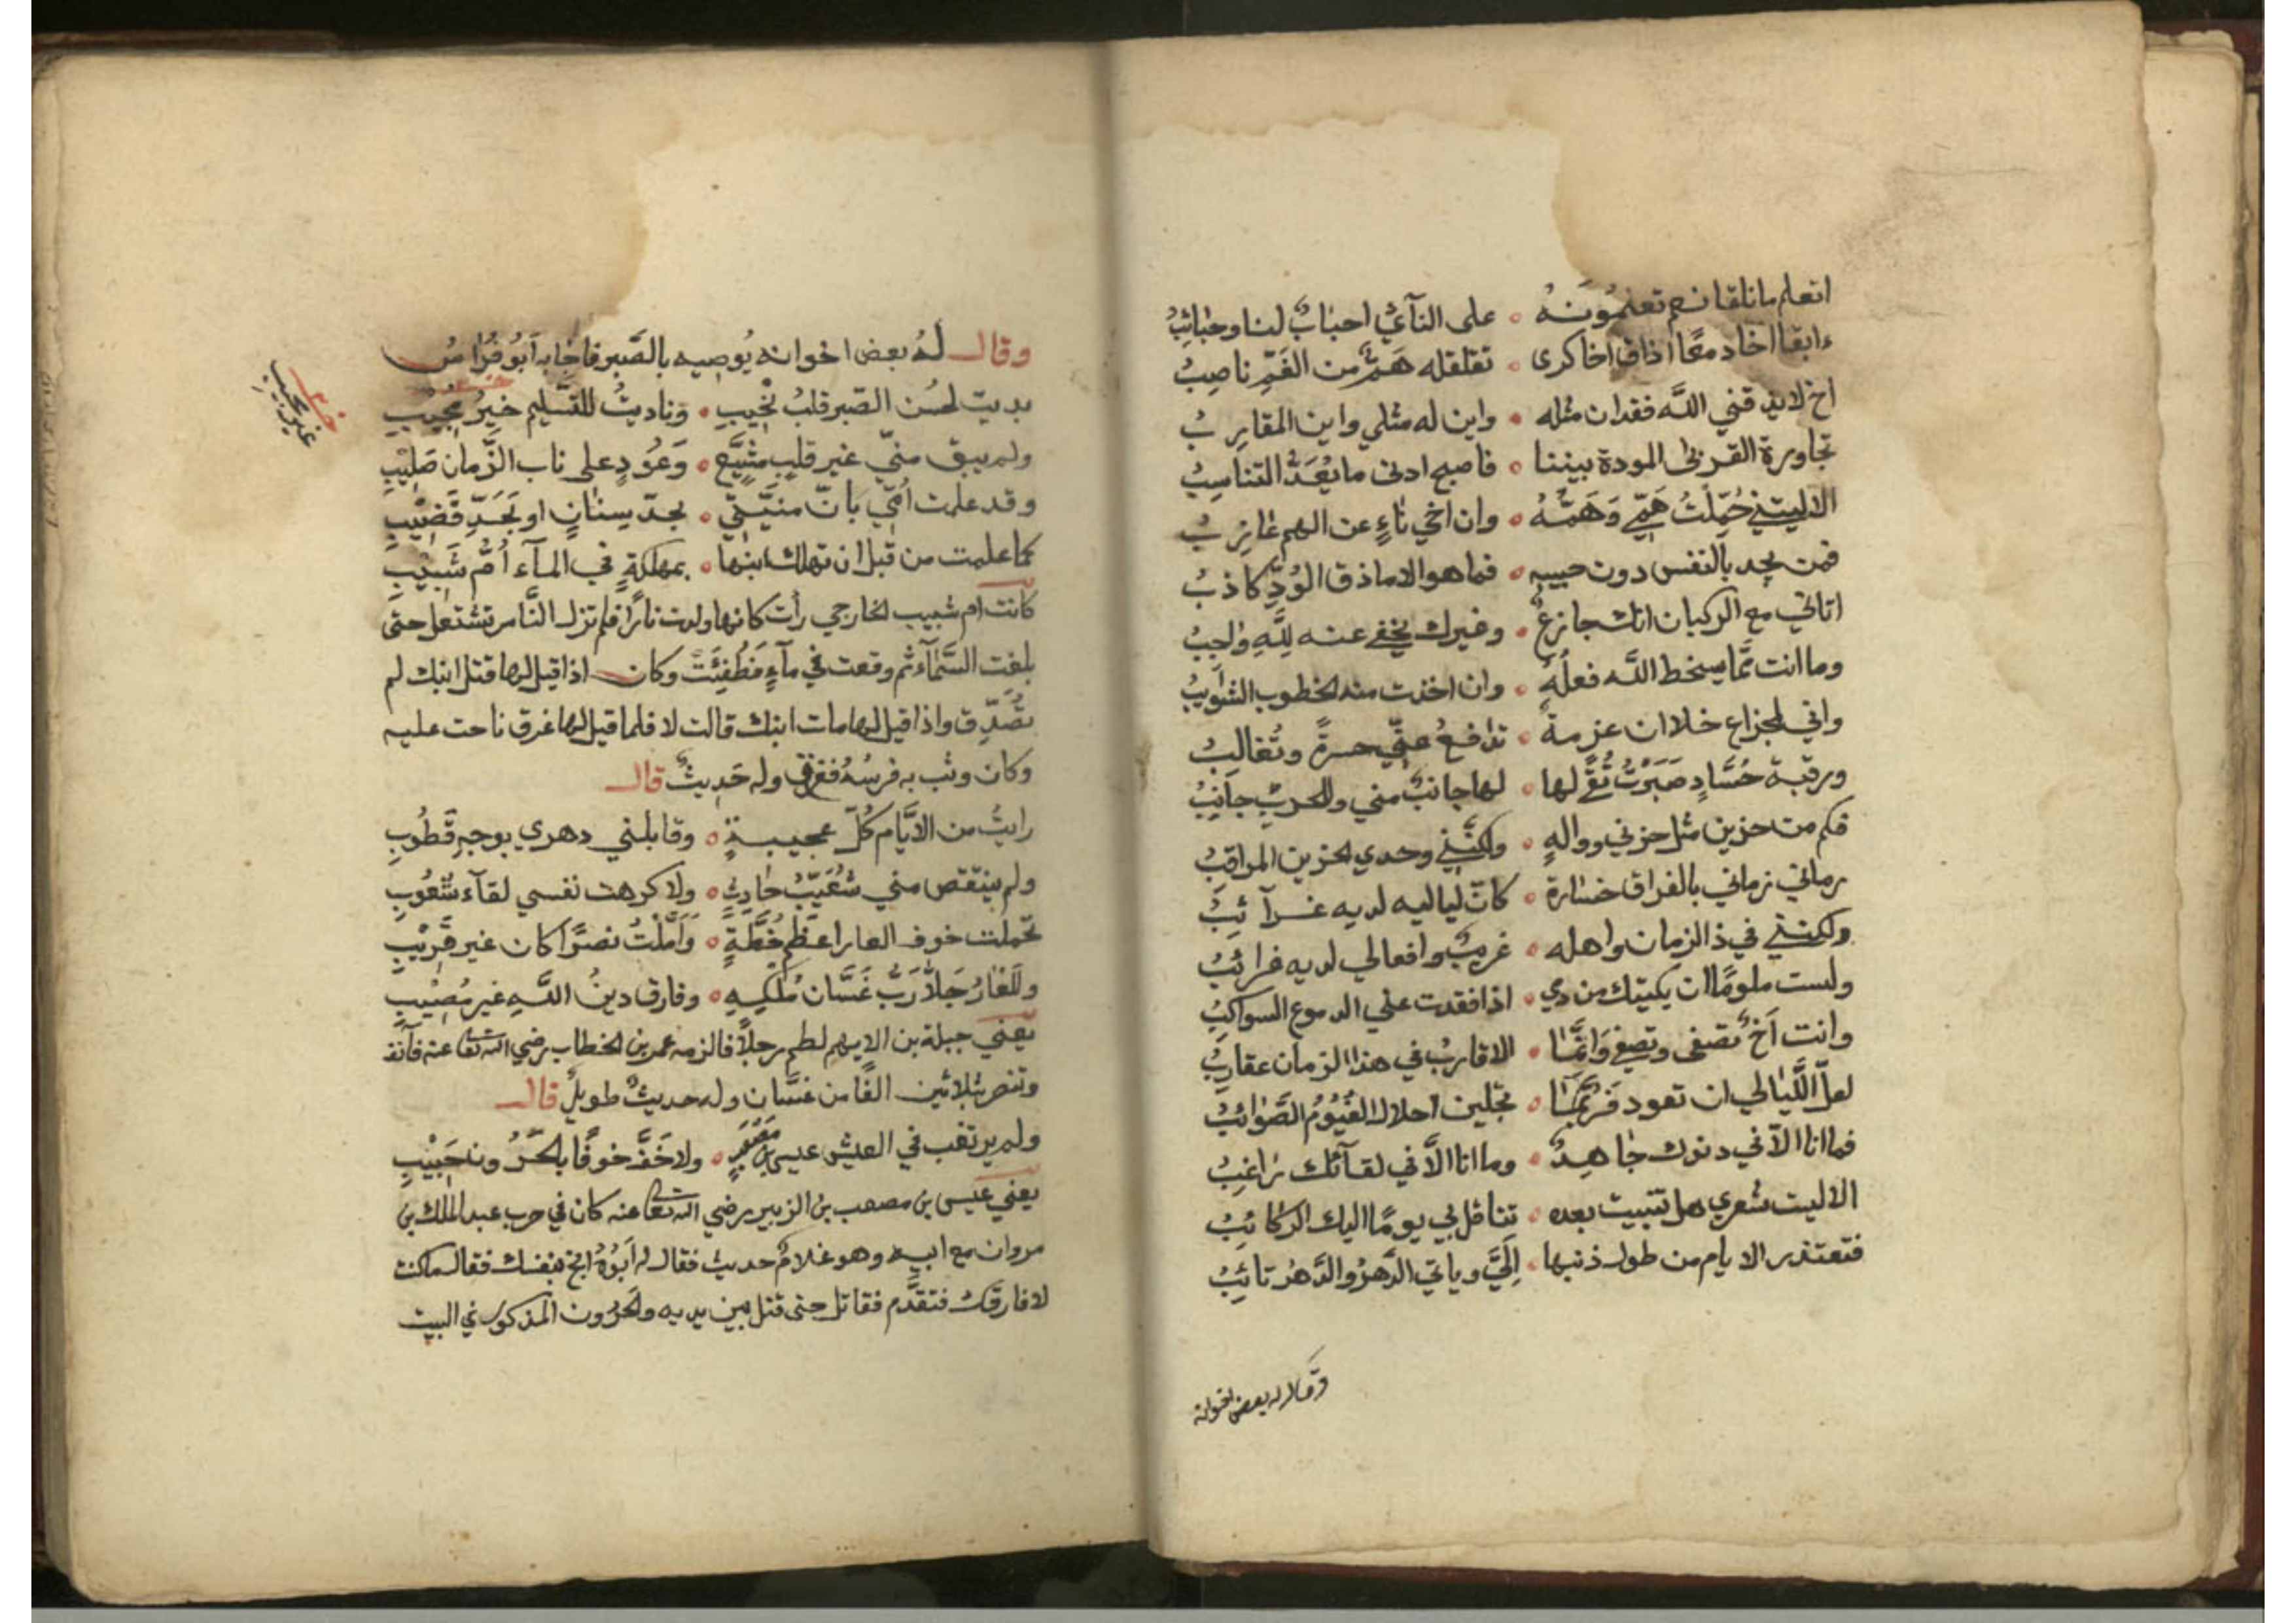 اتعلم ما نلقا نعم تعلمونه ۰ على النآي احبابٌ لنا وحبائبُ
ءابقا اخا دمعًا اذاق اخا كرى ۰ تقلقله هَمٌّ من الغمّ ناصبُ
اخ لا يذقني الله فقدان مثله ۰ واين له مثلي واين المقاربُ
تجاورة القربى المودة بيننا ۰ فاصبح ادنى ما يُعَدُّ التناسبُ
الا ليتني حُمّلتُ هَمّي وَهَمَّهُ ۰ وان اخي ناءٍ عن الهم عازبُ
فمن يجد بالنفس دون حبيبه ۰ فما هو الا ماذق الوُدِّ كاذبُ
اتاني مع الركبان انك جازعٌ ۰ وغيرك يخفى عنه لِلّهِ واجبُ
وما انت ممّا يسخط الله فعلُهُ ۰ وان اخذت منه الخطوب الشوايبُ
واني لمجزاع خلا ان عزمة ۰ تدافعُ عنّي حسرةً وتُغالبُ
ورقبة حُسَّادٍ صَبَرْتُ تُقًى لها ۰ لها جانبٌ مني وللحربِ جانبُ
فكم من حزين مثل حزني ووالهٍ ۰ ولكنّني وحدي الحزين المراقبُ
رماني زماني بالفراق خسارة ۰ كانّ لياليه لديه غرآئبُ
ولكنني في ذا الزمان واهله ۰ غريبٌ وافعالي لديه غرائبُ
ولست ملومًا ان بكيتك من دمي ۰ اذا فقدت عني الدموع السواكبُ
وانت اخٌ تصفى وتصفي وَانّما ۰ الاقاربُ في هذا الزمان عقاربُ
لعلّ اللَّيالي ان تعود فربّما ۰ تجلين احلال الغيُومُ الصَّوائبُ
فما انا الا في دنوك جاهدٌ ۰ وما انا الّا في لقآئك راغبُ
الا ليت شعري هل تبيت بعده ۰ تناقل بي يومًا اليك الركائبُ
فتعتذر الايام من طول ذنبها ۰ اِلَيَّ ويأتي الدَّهرُ والدَّهرُ تائبُ
وقال له بعض اخوانه
وقال لهُ بعض اخوانه يُوصيه بالصَّبر فاجابه اَبُو فُراسٍ
بديت لحُسن الصّبر قلبُ نجيبِ ۰ وناديتُ للتسليم خيرُ مجيبِ
خ غير مجيب
ولم يبق منّي غير قلبٍ مشيَّع ۰ وَعُودٍ على ناب الزّمان صَليبِ
وقد علمت اُمّي بانّ منيّتي ۰ بحدّ سِنانٍ او بحَدِّ قَضيْبِ
كما علمت من قبل ان تهلك ابنها ۰ بمهلكةٍ في المآء اُمُّ شَبيبِ
كانت ام شبيب الخارجي رأت كانها ولدت نارًا فلم تزل النَّار تشتعل حتى
بلغت السَّمآء ثم وقعت في مآءٍ فَطُفِئَتْ وكان اذا قيل لها قتل ابنك لم
تصَدِّق واذا قيل لها مات ابنك قالت لا فلما قيل لها غرق ناحت عليه
وكان وثب به فرسُهُ فغرق وله حَديثٌ قال
رايتُ من الايَّام كُلَّ عجيبةٍ ۰ وقابلني دهري بوجهٍ قَطُوبِ
ولم ينتقص مني شُعَيّبُ حادثٍ ۰ ولا كرهت نفسي لقآء شُعُوبِ
تحمّلت خوف العار اعظم خُطَّةٍ ۰ وَاَمَّلْتُ نصرًا كان غير قَريْبِ
وللعَارُ خَلاَّ رَبَّ غَسَّان مُلْكِهِ ۰ وفارق دينُ اللهِ غير مُصيْبِ
يعني جبلة بن الايهم لطم رجلاً فالزمه عمر بن الخطاب رضي الله تعا عنه فآنف
وتنصر بثلاثين الفًا من غسَّان وله حديثٌ طويلٌ قال
ولم يرتغب في العيش عيسى بن مصعبٍ ۰ ولا خَفَّ خوفًا بالحَرُونِ حَبيْبِ
يعني عيسى بن مصعب بن الزبير رضي الله تعا عنه كان في حرب عبد الملك بن
مروان مع ابيه وهو غلامٌ حديث فقال له اَبُوهُ انج بنفسك فقال ما كنت
لافارقك فتقدَّم فقاتل حتى قتل بين يديه والحَرُون المذكور في البيت